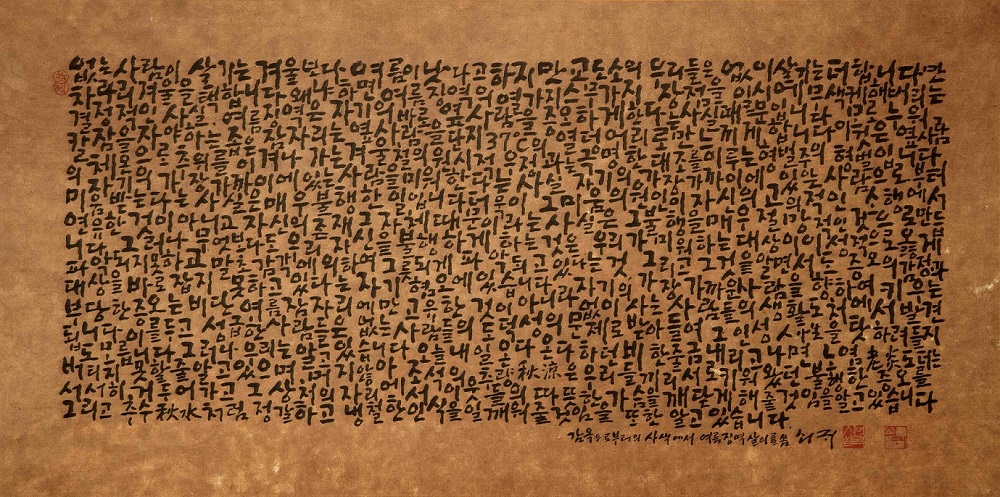 없는 사람이 살기는 겨울보다 여름이 낫다고 하지만 교도소의 우리들은 없이살기는 더합니다만
차라리 겨울을 택합니다 왜냐하면 여름징역의 열가지 스무가지 장점을 일시에 무색케해버리는
결정적인 사실 여름징역은 자기의 바로 옆사람을 증오하게 한다는 사실때문입니다 모로누워
칼잠을 자야하는 좁은 잠자리는 옆사람을 단지 37℃의 열덩어리로만 느끼게합니다 이것은 옆사람
의 체온으로 추위를 이겨나가는 겨울철의 원시적 우정과는 극명한 대조를 이루는 형벌중의 형벌입니다
자기의 가장 가까이에 있는 사람을 미워한다는 사실 자기의 가장 가까이에 있는 사람으로부터
미움받는다는 사실은 매우 불행한 일입니다 더욱이 그 미움의 원인이 자신의 고의적인 소행에서
연유한 것이 아니고 자신의 존재 그 자체 때문이라는 사실은 그 불행을 매우 절망적인 것으로 만듭
니다 그러나 무엇보다도 우리 자신을 불행하게 하는 것은 우리가 미워하는 대상이 이성적으로 옳게
파악되지 못하고 말초감각에 의하여 그릇되게 파악되고 있다는 것 그리고 그것을 알면서도 증오의 감정과
대상을 바로잡지 못하고 있다는 자기혐오에 있습니다 자기의 가장 가까운 사람을 향하여 키우는
부당한 증오는 비단 여름 잠자리에만 고유한 것이 아니라 없이 사는 사람들의 생활 도처에서 발견
됩니다 이를 두고 성급한 사람들은 없는 사람들의 도덕성의 문제로 받아들여 그 인성을 탓하려 들지
도 모릅니다 그러나 우리는 알고 있습니다 오늘내일 온다온다 하던 비 한줄금 내리고 나면 노염老炎도 더는
버티지 못할 줄 알고 있으며 머지않아 조석의 추량秋凉은 우리들끼리 서로 키워왔던 불행한 증오를
서서히 거두어가고 그 상처의 자리에서 이웃들의 따뜻한 가슴을 깨닫게 해줄 것임을 알고 있습니다
그리고 추수秋水처럼 정갈하고 냉철한 인식을 일깨워 줄 것임을 또한 알고 있습니다
감옥으로부터의 사색에서 여름징역살이를 씀 쇠귀